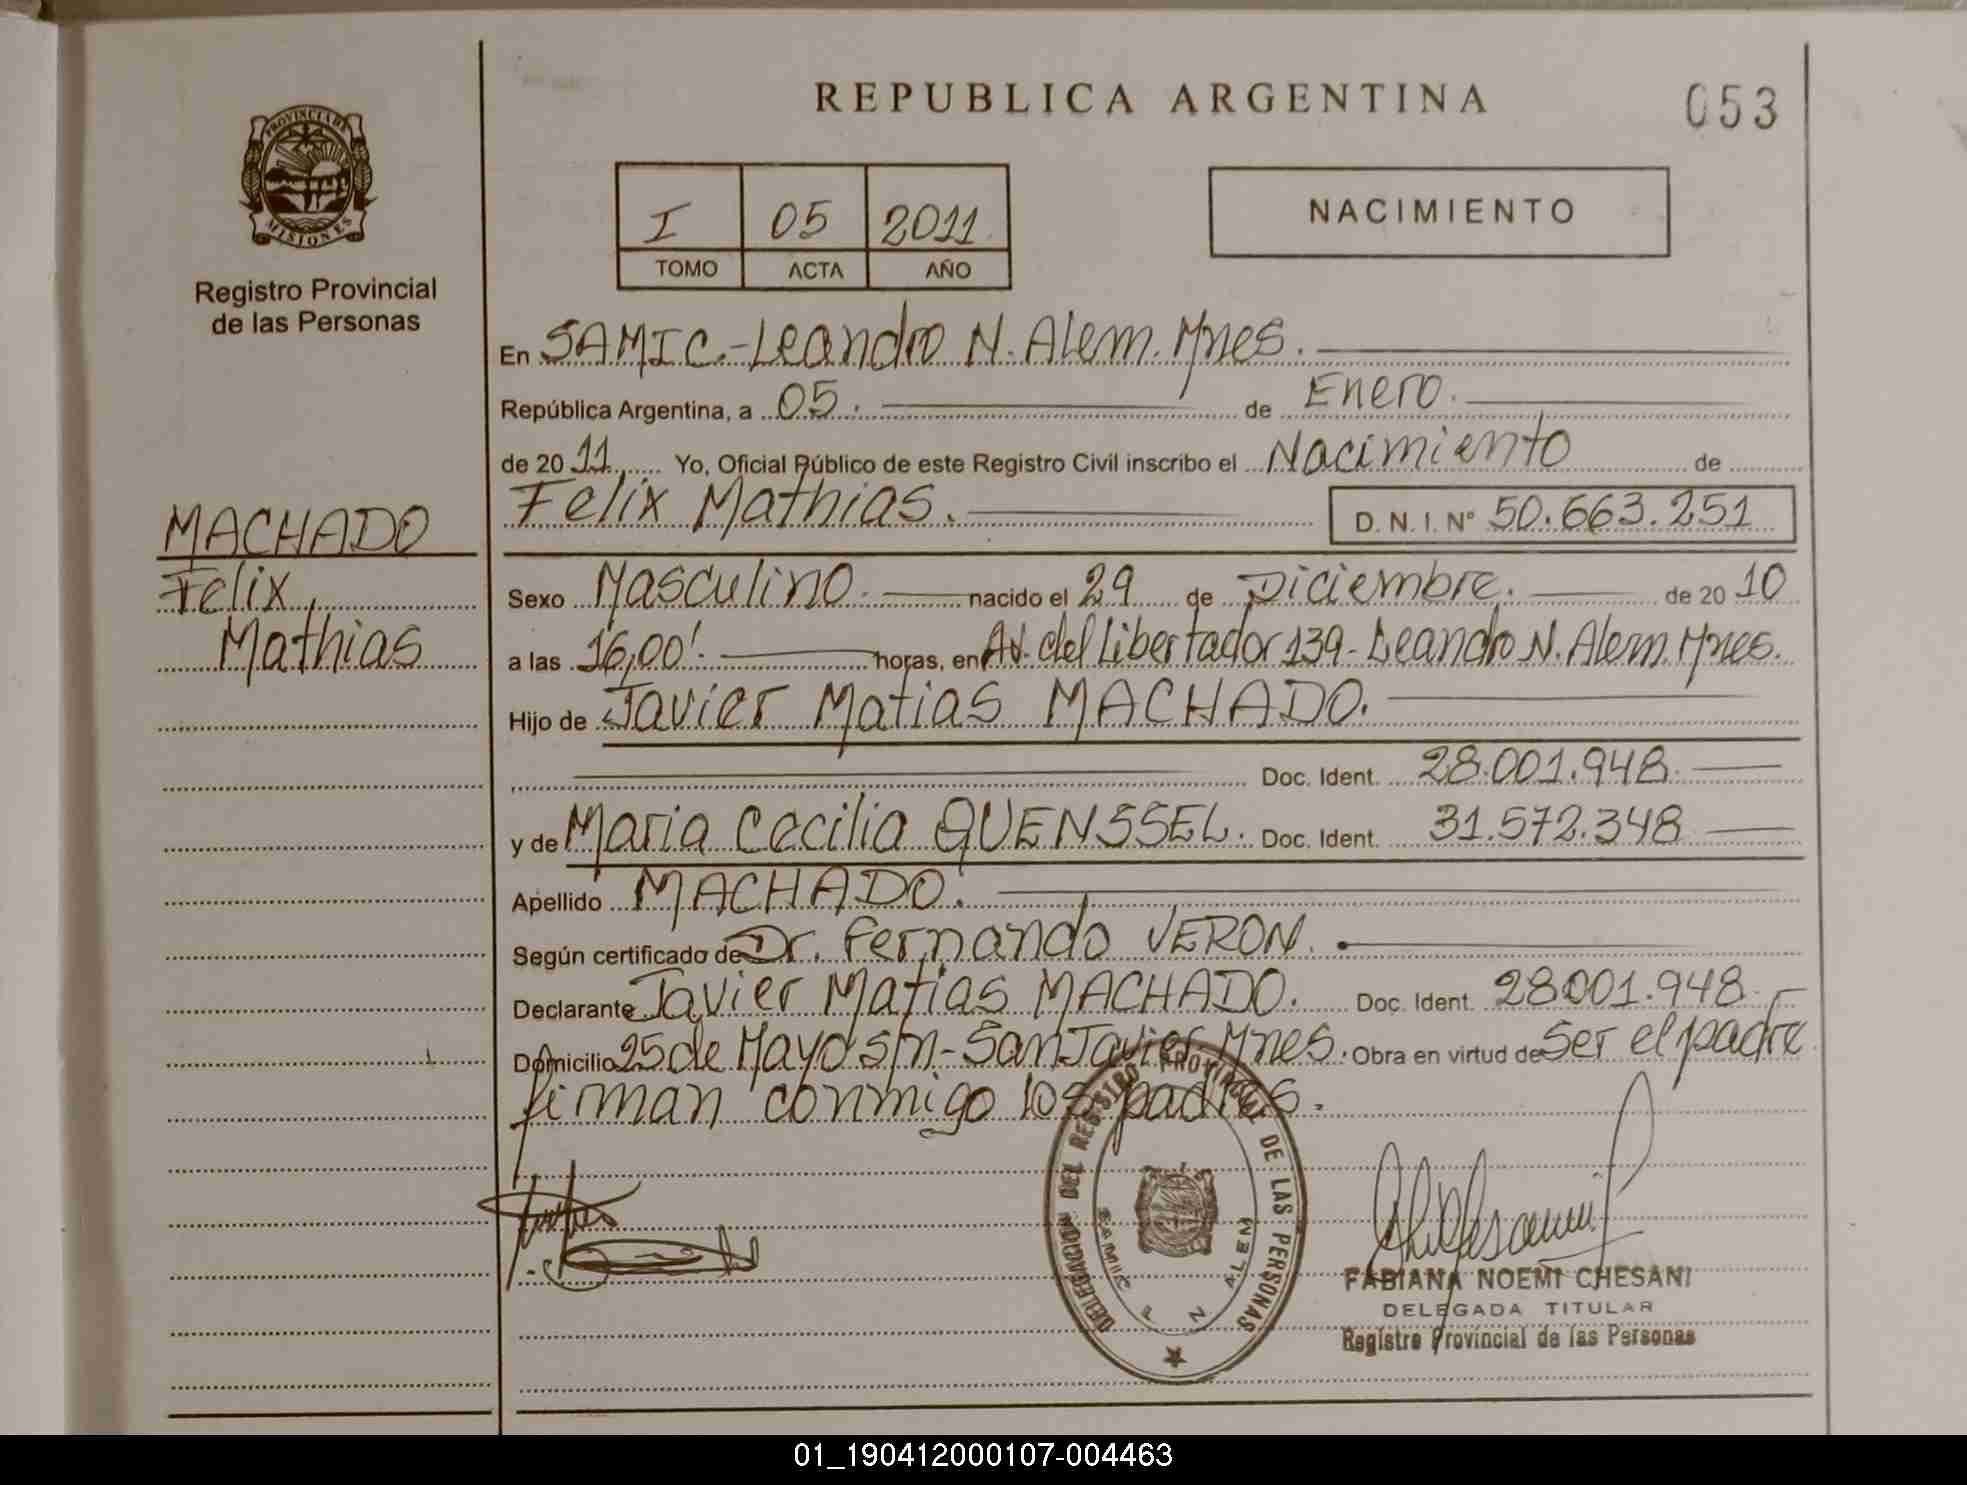 REPUBLICA ARGENTINA
053
PROVINCIA DE
MISIONES
Registro Provincial
de las Personas
I 05 2011
TOMO ACTA AÑO
NACIMIENTO
En SAMIC.-Leandro N. Alem. Mnes.
República Argentina, a 05. de Enero.
de 2011 Yo, Oficial Público de este Registro Civil inscribo el Nacimiento de
Felix Mathias. D. N. I. Nº 50.663.251
MACHADO
Felix
Mathias
Sexo Masculino. nacido el 29 de Diciembre. de 2010
a las 16,00'. horas, en Av. del Libertador 139- Leandro N. Alem. Mnes.
Hijo de Javier Matias MACHADO.
Doc. Ident. 28.001.948.
y de Maria Cecilia QUENSSEL. Doc. Ident. 31.572.348
Apellido MACHADO.
Según certificado de Dr. Fernando VERON.
Declarante Javier Matias MACHADO. Doc. Ident. 28001.948
Domicilio 25 de Mayo s/n- San Javier Mnes. Obra en virtud de Ser el padre
firman conmigo los padres.
DELEGACION DEL REGISTRO PROVINCIAL DE LAS PERSONAS
SAMIC
N ALEM
FABIANA NOEMI CHESANI
DELEGADA TITULAR
Registro Provincial de las Personas
01_190412000107-004463